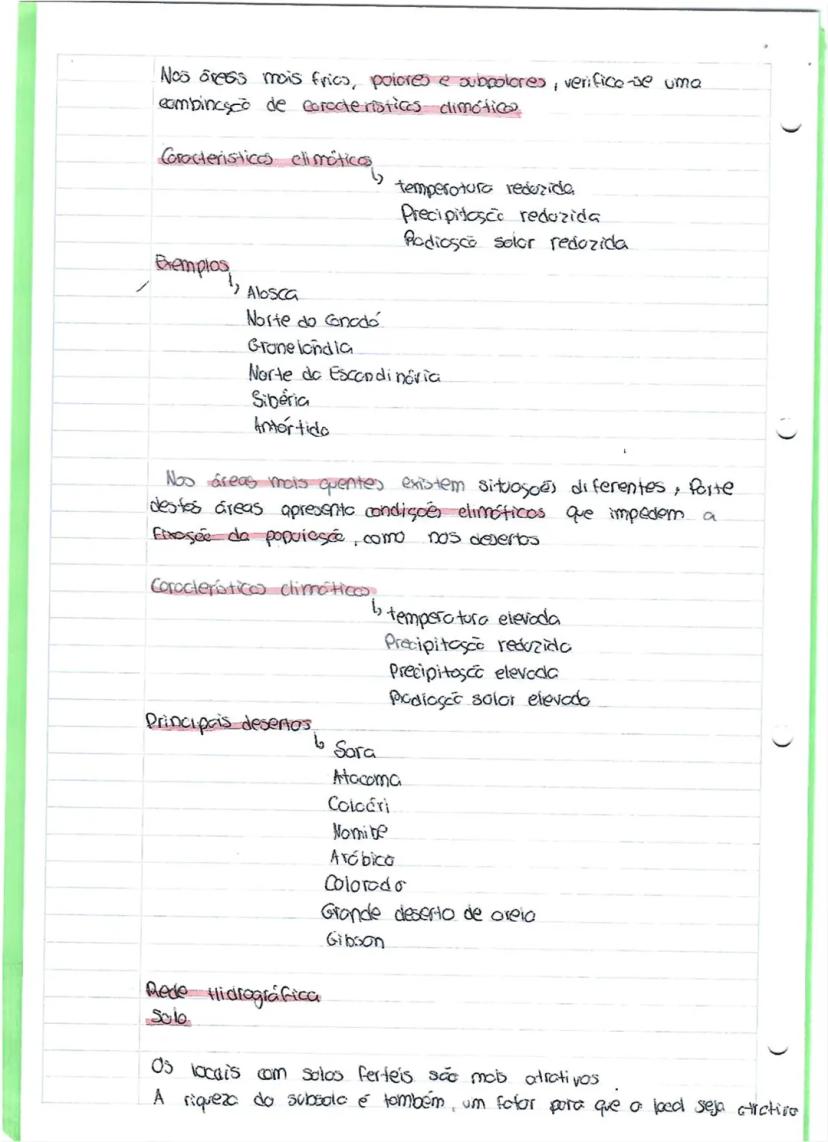 Nas áreas mais frias, polares e subpolares, verifica-se uma
combinação de características climáticas
Características climáticas
↳ temperatura reduzida
Precipitação reduzida
Radiação solar reduzida
Exemplos
↳ Alasca
Norte do Canadá
Gronelândia
Norte da Escandinávia
Sibéria
Antártida
Nas áreas mais quentes existem situações diferentes, Parte
destas áreas apresenta condições climáticas que impedem a
Fixação da população, como nos desertos
Características climáticas
↳ temperatura elevada
Precipitação reduzida
Precipitação elevada
Radiação solar elevada
Principais desertos
↳ Sara
Atacama
Calaári
Namibe
Arábico
Colorado
Grande deserto de areia
Gibson
Rede Hidrográfica
Solo
Os locais com solos ferteis são mais atrativos.
A riqueza do subsolo é também, um fator para que o local seja atrativo